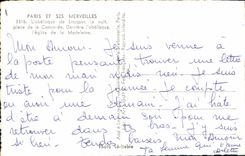 PARIS ET SES MERVEILLES
3316. L'obélisque de Louqsor, la nuit,
place de la Concorde. Derrière l'obélisque,
l'église de la Madeleine.
Mon Amour. Je suis venue à
la poste pensant trouver une lettre
de mon mari mais rien. Je suis
triste pour la journée. Je compte
en avoir une demain. J'ai hâte
d'être à demain soir pour me
retrouver dans tes bras. Je suis
bien Tendres baisers mon Amour
Ta femme qui